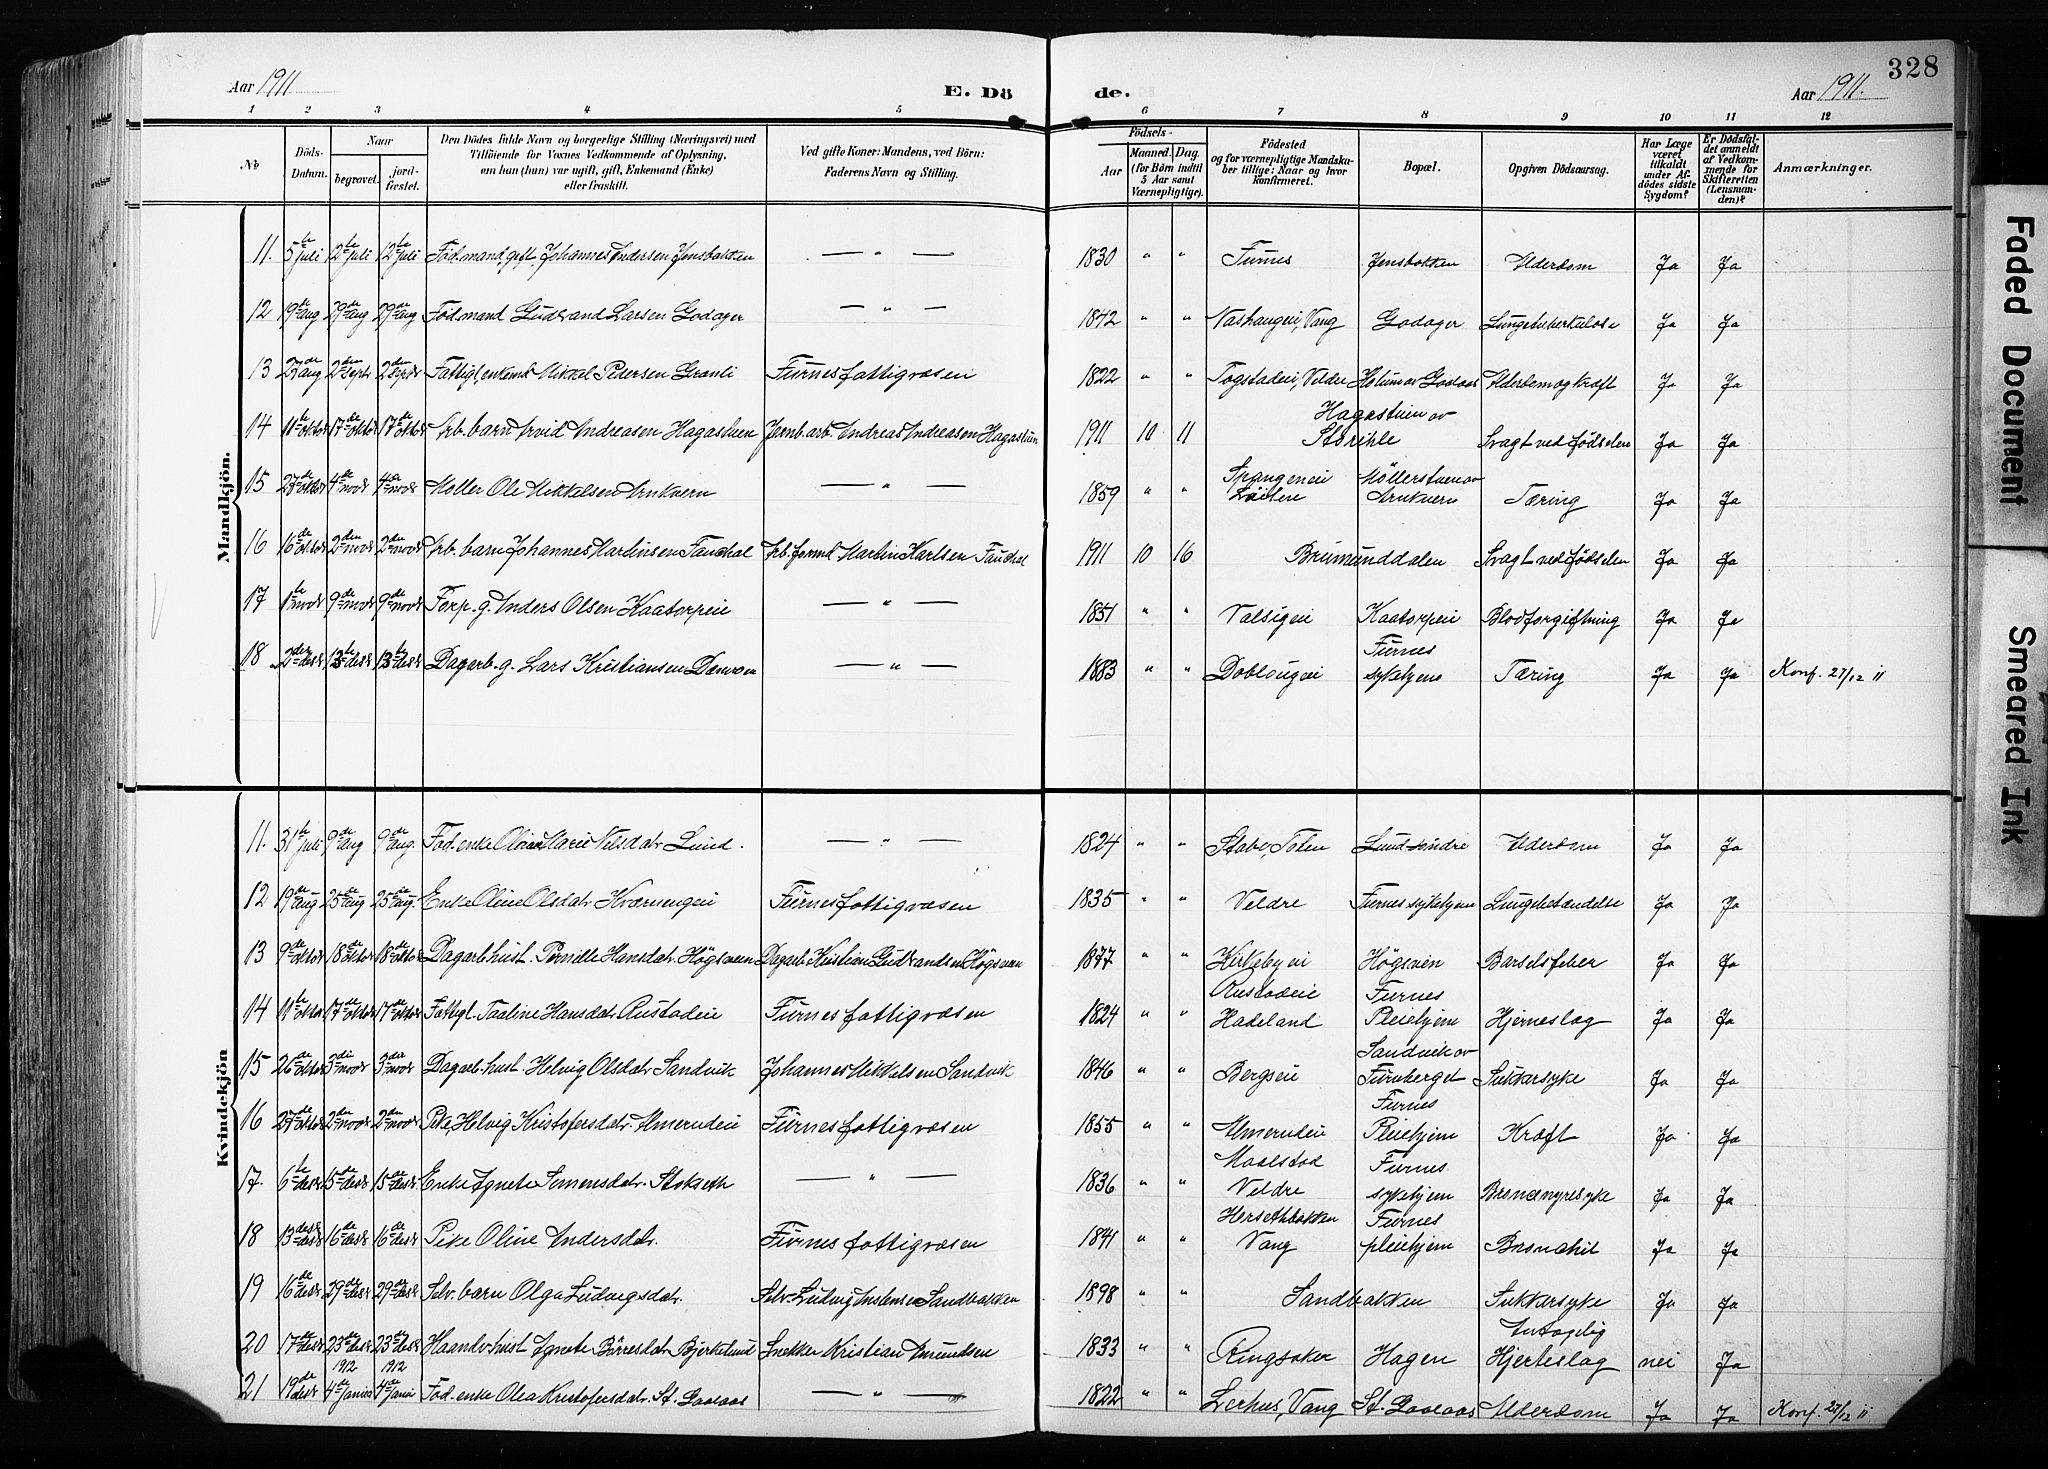 328
Aar 1911
E. Dö
de.
Aar 1911.
1 2 3 4 5 6 7 8 9 10 11 12
No
Döds-Datum.
Naar
begravet.
jordfæstet.
Den Dödes fulde Navn og borgerlige Stilling (Næringsvei) med
Tilföiende for Voxnes Vedkommende af Oplysning,
om han (hun) var ugift, gift, Enkemand (Enke)
eller fraskilt.
Ved gifte Koner: Mandens, ved Börn:
Faderens Navn og Stilling.
Födsels-
Aar
Maaned. Dag.
(for Börn indtil
5 Aar samt
Værnepligtige).
Födested
og for værnepligtige Mandska-
ber tillige: Naar og hvor
konfirmeret.
Bopæl.
Opgiven Dödsaarsag.
Har Læge
været
tilkaldt
under Af-
dödes sidste
Sygdom?
Er Dödsfal-
det anmeldt
af Vedkom-
mende for
Skifteretten
(Lensman-
den)?
Anmærkninger.
Mandkjön.
11. 5te juli 12te juli 12te juli Föd.mand gift, Johannes Andersen Jensbakken — " — 1830 " " Furnes Jensbakken Alderdom Ja Ja
12 19de aug 29de aug 29de aug Föd.mand Gudbrand Larsen Godager — " — 1842 " " Nashaugen, Vang Godager Lungetuberkulose Ja Ja
13 23de aug 2den sept 2den septbr Fattigl. enkemd Mikkel Pedersen Granli Furnes fattigvæsen 1822 " " Togstadeie, Veldre Alderdom og kræft Ja Ja
14 11te oktbr 17de oktbr 17de oktbr Arb. barn Arvid Andreasen Hagastuen Jernb.arb. Andreas Andreasen Hagastuen 1911 10 11 Hagastuen av Storihle Svagt ved fødselen Ja Ja
15 27de oktbr 4de novbr 4de novbr Møller Ole Mikkelsen Arnkvern — " — 1859 " " Spangeneie Løiten Möllerstuen av Arnkvern Tæring Ja Ja
16 16de oktbr 2den novbr 2den novbr Arb. barn Johannes Martinsen Fauchal Arb. formd Martin Karlsen Fauchal 1911 10 16 Brumunddalen Svagt ved fødselen Ja Ja
17 1te novbr 9de novbr 9de novbr Forp. g. Anders Olsen Kaatorpeie — " — 1851 " " Valsigeie Kaatorpeie Blodforgiftning Ja Ja
18 2den desbr 13te desbr 13te desbr Dagarb. g. Lars Kristiansen — " — 1883 " " Doblougeie Furnes sykehjem Tæring Ja Ja Konf. 27/12 11
Kvindekjön
11. 31te juli 9de aug 9de aug. Föd. enke Oline Marie Nilsdatr Lund. — " — 1824 " " Stabo, Toten Lund söndre Alderdom Ja Ja
12 19de aug 25de aug 25de aug. Enke Oline Olsdatr Kværnengeie Furnes fattigvæsen 1835 " " Veldre Furnes sykehjem Lungebetændelse Ja Ja
13 9de oktbr 18de oktbr 18de oktbr Dagarb hust. Pernille Hansdatr Högsveen Dagarb. Kristian Gudbrandsen Högsveen 1877 " " Kirkebyeie Högsveen Barselfeber Ja Ja
14 11te oktbr 17de oktbr 17de oktbr Fattigl. Pauline Hansdatr Rustadeie Furnes fattigvæsen 1824 " " Rustadeie Hadeland Furnes Pleiehjem Hjerneslag Ja Ja
15 26de oktbr 3die novbr 3die novbr Dagarb. hust Helvig Olsdatr Sandvik Johannes Mikkelsen Sandvik 1846 " " Bergseie Sandvik av Furuberget Sukkersyke Ja Ja
16 27de oktbr 2den novbr 2den novbr Pike, Helvig Kristofersdatr. Almerudeie Furnes fattigvæsen 1855 " " Almerudeie Furnes Pleiehjem Kræft Ja Ja
17. 6te desbr 15de desbr 15de desbr Enke Agnete Simensdatr. Stokseth — " — 1836 " " Maelstad Veldre Furnes sykehjem Ja Ja
18 13de desbr 16de desbr 16de desbr Pike Oline Andersdatr. Furnes fattigvæsen 1841 " " Hersethbakken Vang Furnes pleiehjem Ja Ja
19 16de desbr 29de desbr 29de desbr Selv. barn Olga Ludvigsdatr. Selv. Ludvig Sandbakken 1898 " " Sandbakken Sukkersyke Ja Ja
20 17de desbr 23de desbr 23de desbr Haandv hust Agnete Börresdatr Bjerkelund Snekker Kristian Amundsen 1833 " " Ringsaker Hagen Antagelig Hjerteslag nei Ja
21 19de desbr 1912 4de januar 1912 4de januar Föd. enke Olea Kristofersdatr. St. Gaalaas — " — 1822 " " Lerhus, Vang St. Gaalaas Alderdom Ja Ja Konf. 27/12 11
Faded Document
Smeared Ink